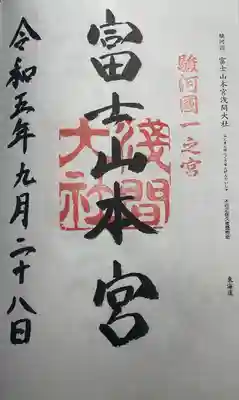 駿河国 富士山本宮浅間大社
東海道
駿河國一之宮
富士山本宮
淺間大社
令和五年九月二十八日